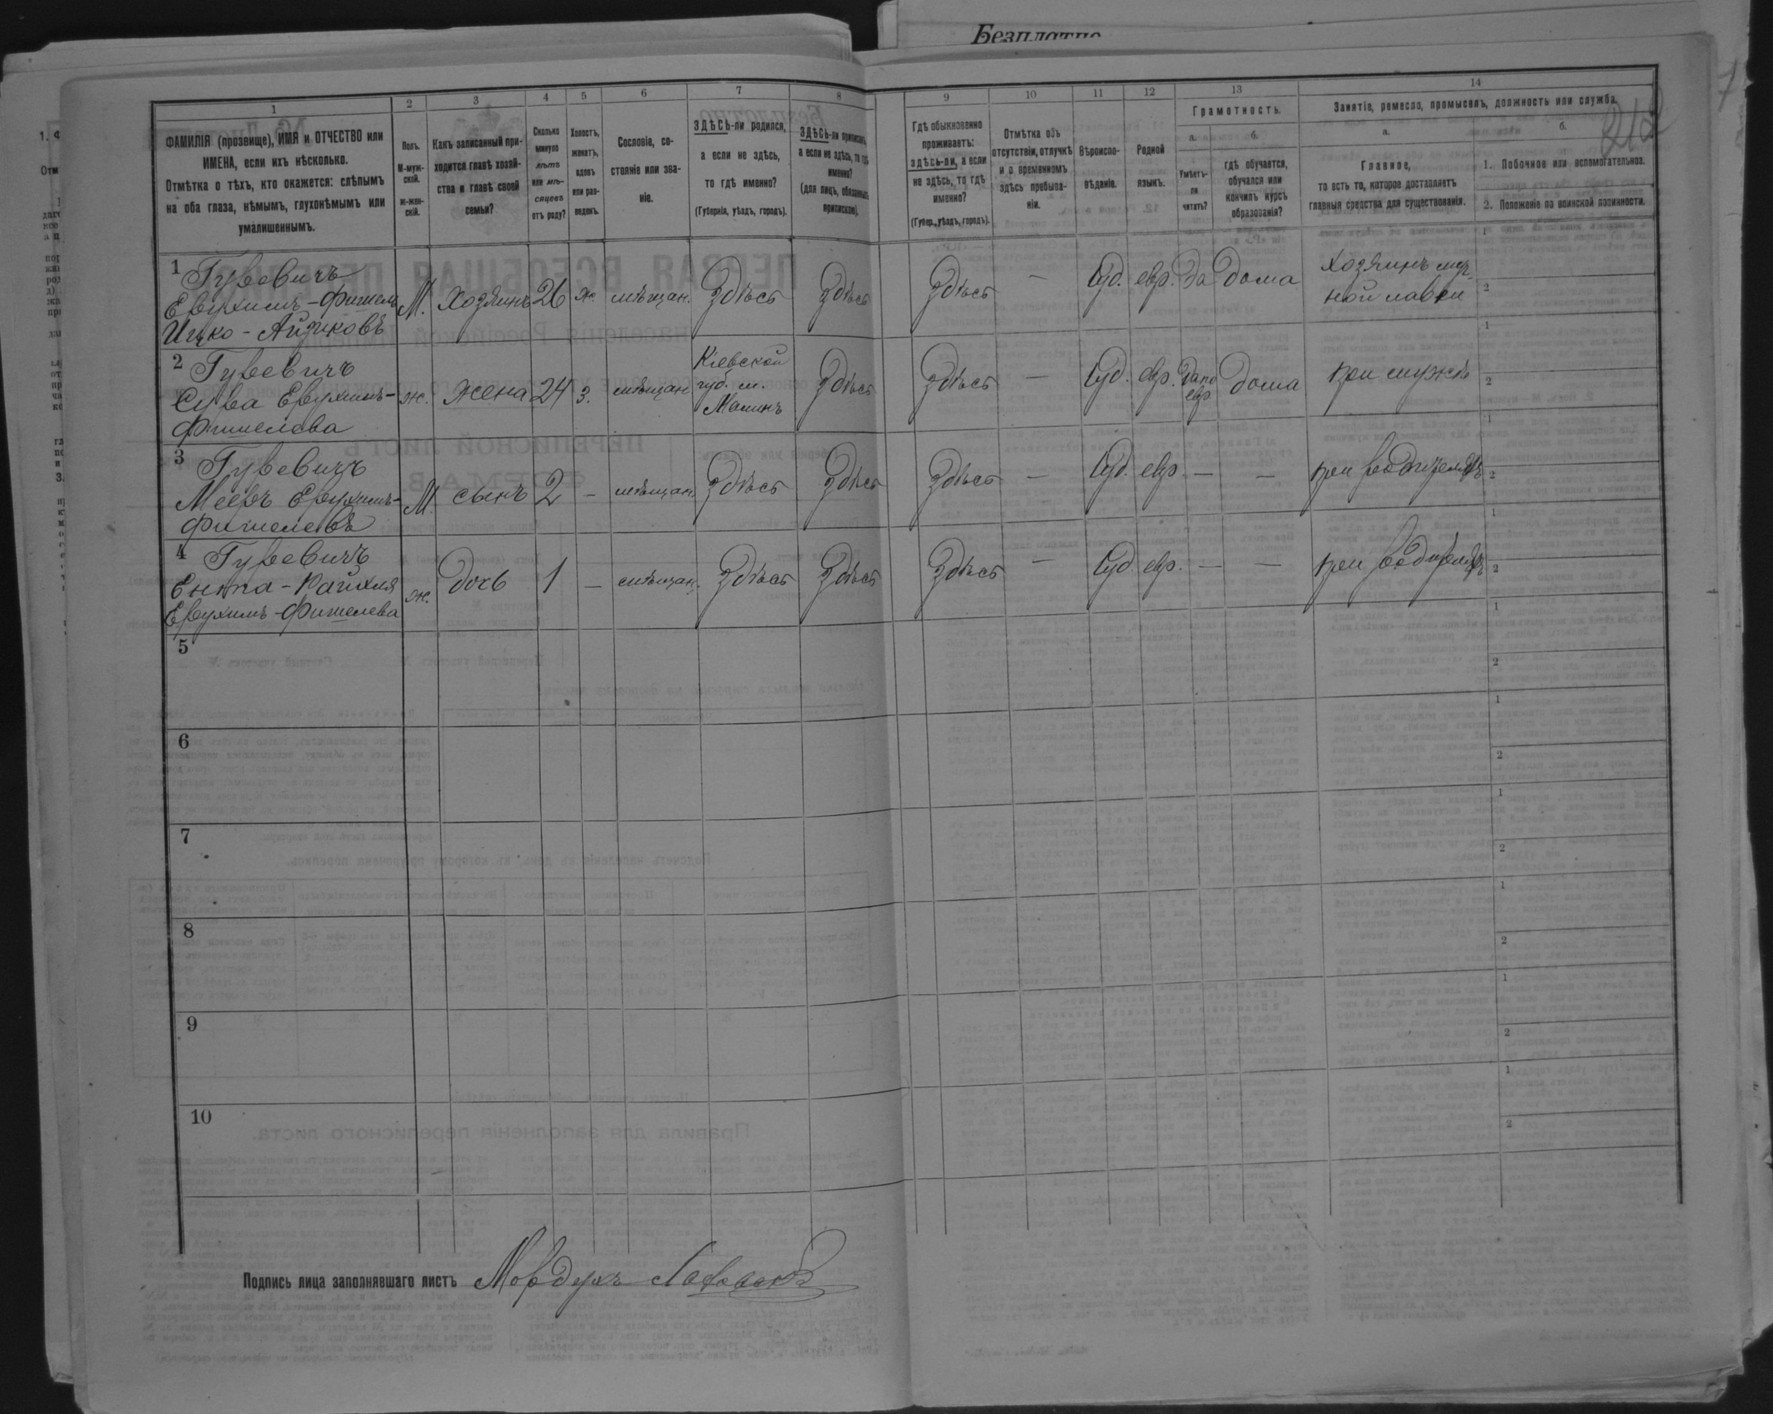 Безплатно
1 2 3 4 5 6 7 8 9 10 11 12 13 14
ФАМИЛІЯ (прозвище), ИМЯ и ОТЧЕСТВО или
ИМЕНА, если ихъ нѣсколько.
Отмѣтка о тѣхъ, кто окажется: слѣпымъ
на оба глаза, нѣмымъ, глухонѣмымъ или
умалишеннымъ.
Полъ.
М-муж-
ской.
ж-жен-
скій.
Какъ записанный при-
ходится главѣ хозяй-
ства и главѣ своей
семьи?
Сколько
минуло
лѣтъ
или мѣ-
сяцевъ
отъ роду?
Холостъ,
женатъ,
вдовъ
или раз-
веденъ.
Сословіе, со-
стояніе или зва-
ніе.
ЗДѢСЬ-ли родился,
а если не здѣсь,
то гдѣ именно?
(Губернія, уѣздъ, городъ).
ЗДѢСЬ-ли приписанъ,
а если не здѣсь, то гдѣ
именно?
(для лицъ, обязанныхъ
припискою).
Гдѣ обыкновенно
проживаетъ:
здѣсь-ли, а если
не здѣсь, то гдѣ
именно?
(Губер., уѣздъ, городъ).
Отмѣтка объ
отсутствіи, отлучкѣ
и о временномъ
здѣсь пребыва-
ніи.
Вѣроиспо-
вѣданіе.
Родной
языкъ.
Грамотность.
а.
Умѣетъ-
ли
читать?
б.
гдѣ обучается,
обучался или
кончилъ курсъ
образованія?
Занятіе, ремесло, промыселъ, должность или служба.
а.
Главное,
то есть то, которое доставляетъ
главныя средства для существованія.
б.
1. Побочное или вспомогательное.
2. Положеніе по воинской повинности.
1 Гуревичъ
Еврухимъ-Фишель М. хозяинъ 26 ж. мѣщан. Здѣсь Здѣсь Здѣсь — Іуд. евр. Да дома Хозяинъ муч-
ной лавки
Ицко-Айзиковъ
2 Гуревичъ
Сурва Еврухимъ-
Фишелева ж. жена 24 з. мѣщан. Кіевской
губ. м.
Малинъ Здѣсь Здѣсь — Іуд. евр. Да по
евр дома при мужѣ
3 Гуревичъ
Мееръ Еврухимъ-
Фишелевъ М. сынъ 2 — мѣщан. Здѣсь Здѣсь Здѣсь — Іуд. евр. — — при родителяхъ
4 Гуревичъ
Ента-Райхля
Еврухимъ-Фишелева ж. дочь 1 — мѣщан. Здѣсь Здѣсь Здѣсь — Іуд. евр. — — при родителяхъ
5
6
7
8
9
10
Подпись лица заполнявшаго листъ Мордухъ